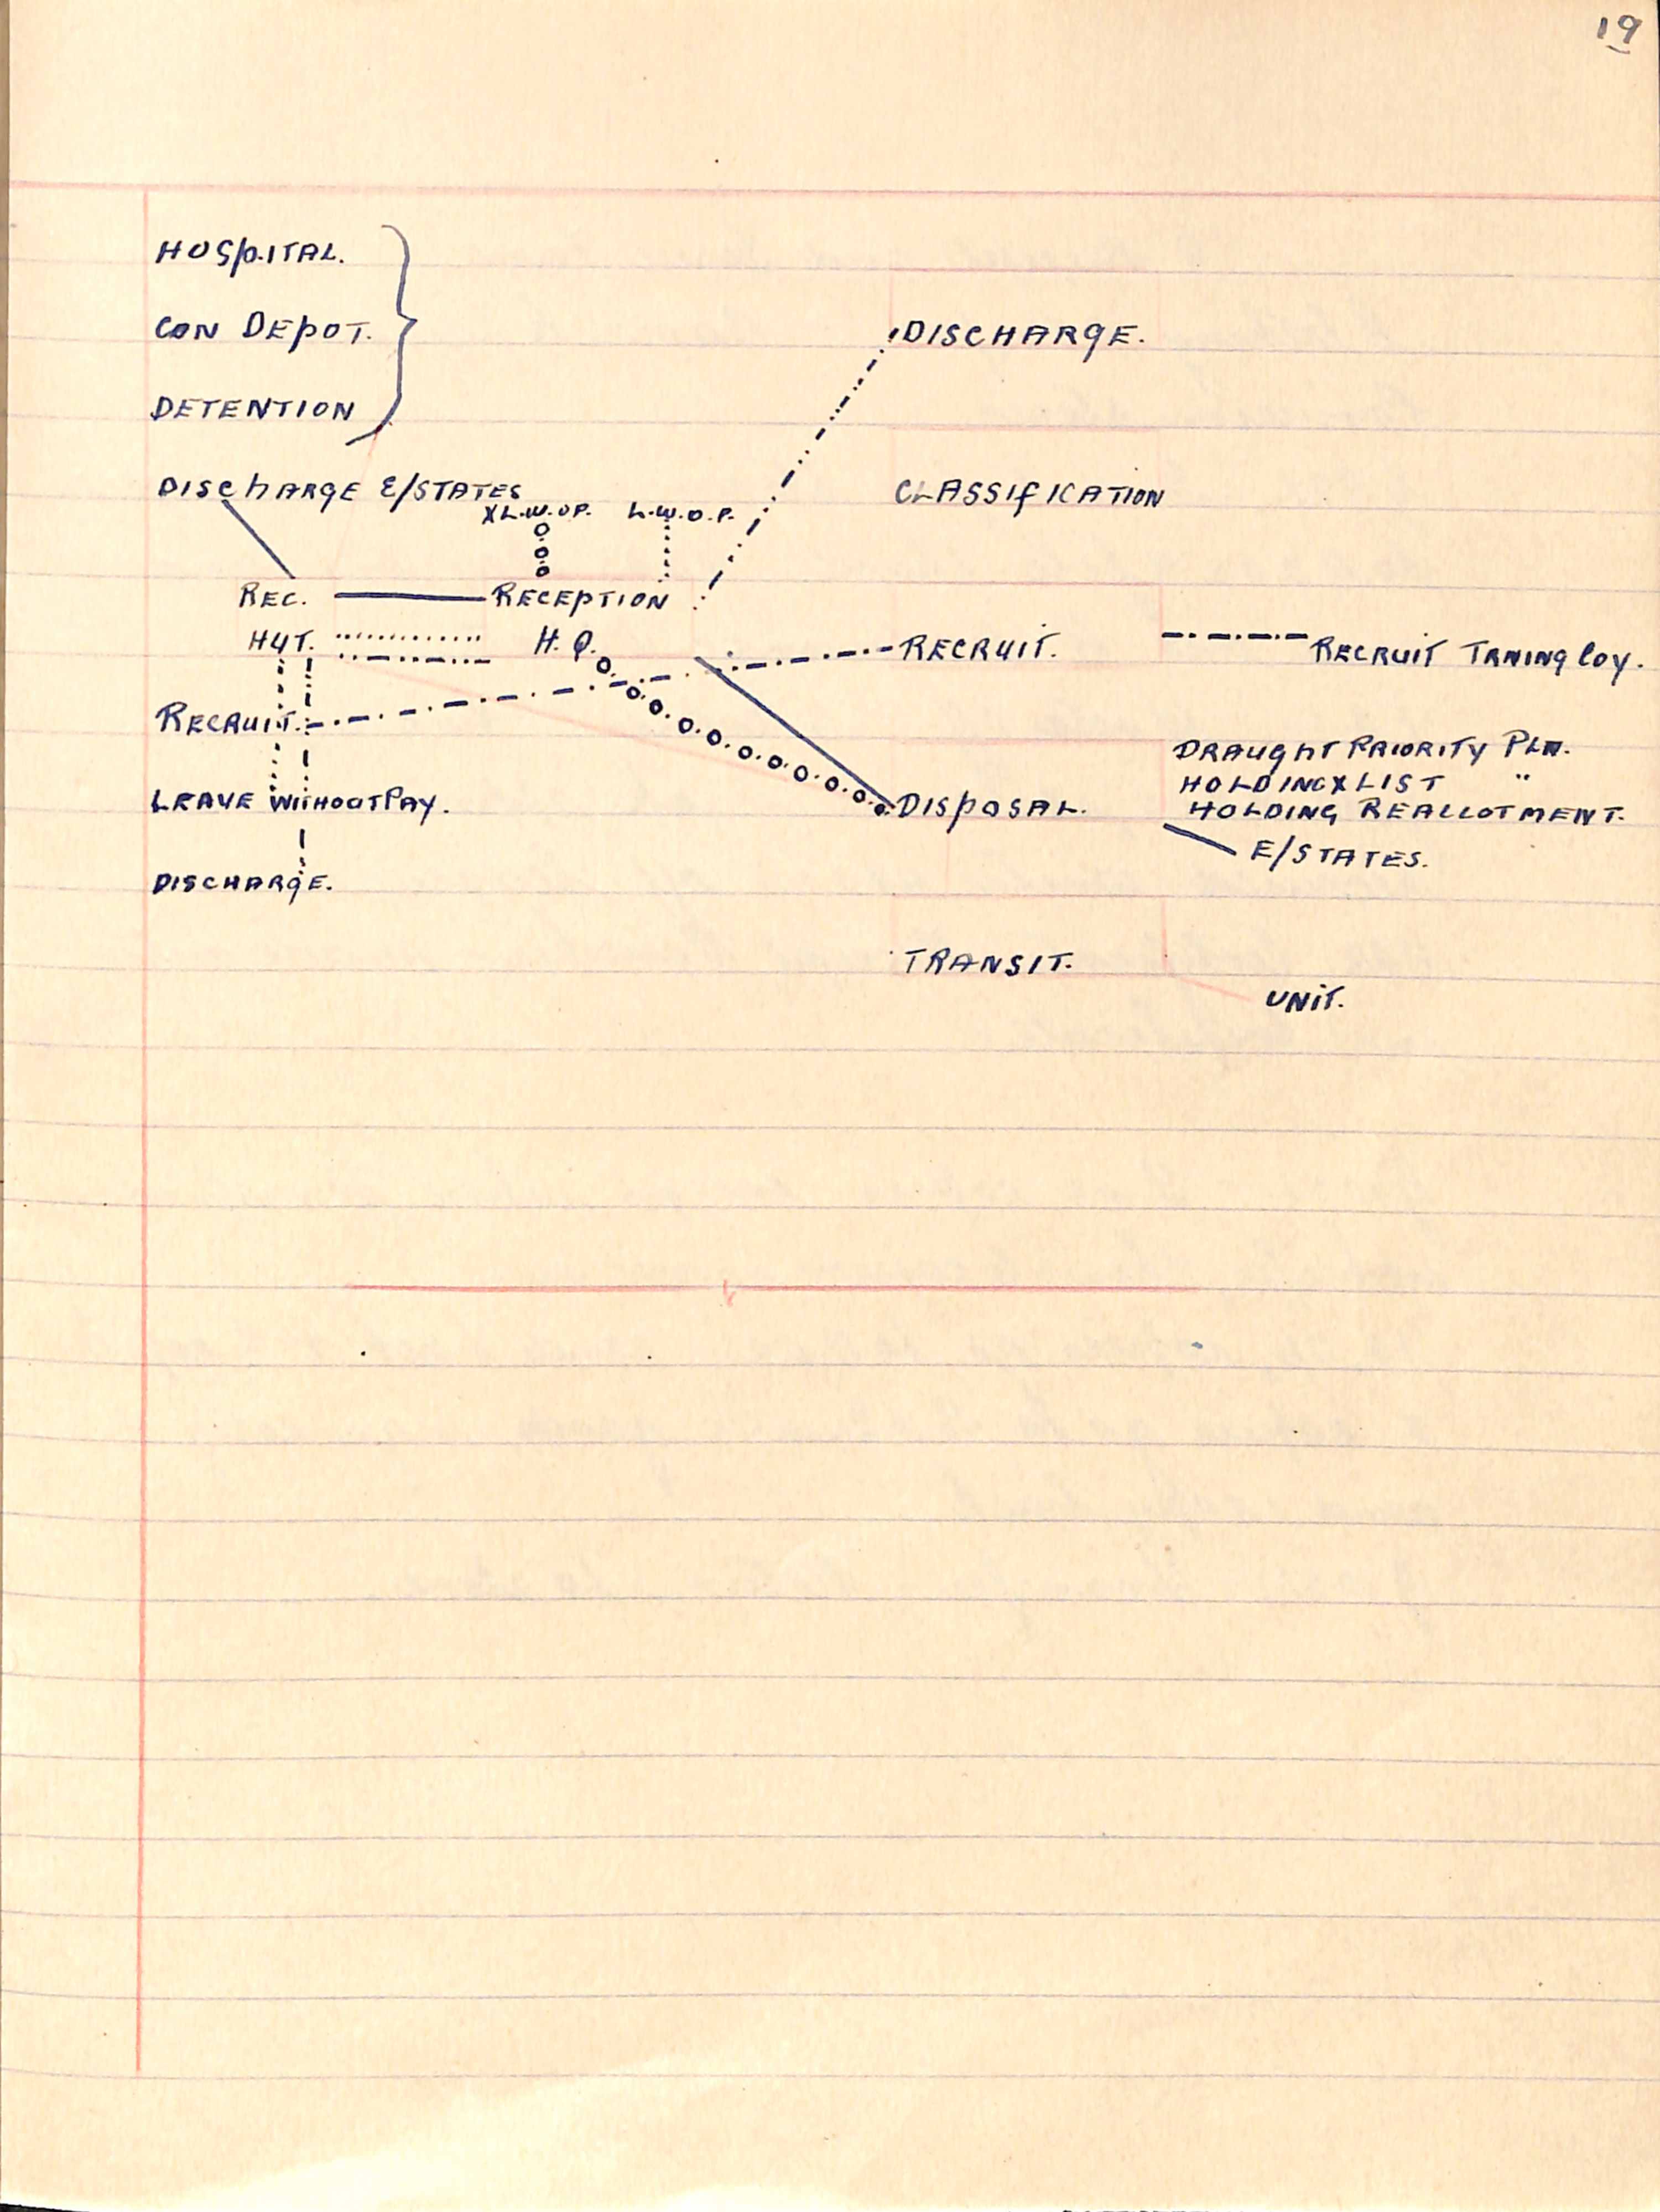 19
HOSPITAL.
CON DEPOT.
DISCHARGE.
DETENTION
DISCHARGE E/STATES
CLASSIFICATION
X L.W.OP. L.W.O.P.
REC. RECEPTION
HUT. H.Q. RECRUIT. RECRUIT TRNING COY.
RECRUIT.
DRAUGHT PRIORITY PLN.
HOLDING X LIST "
LEAVE WITHOUT PAY. DISPOSAL. HOLDING REALLOTMENT.
E/STATES.
DISCHARGE.
TRANSIT.
UNIT.